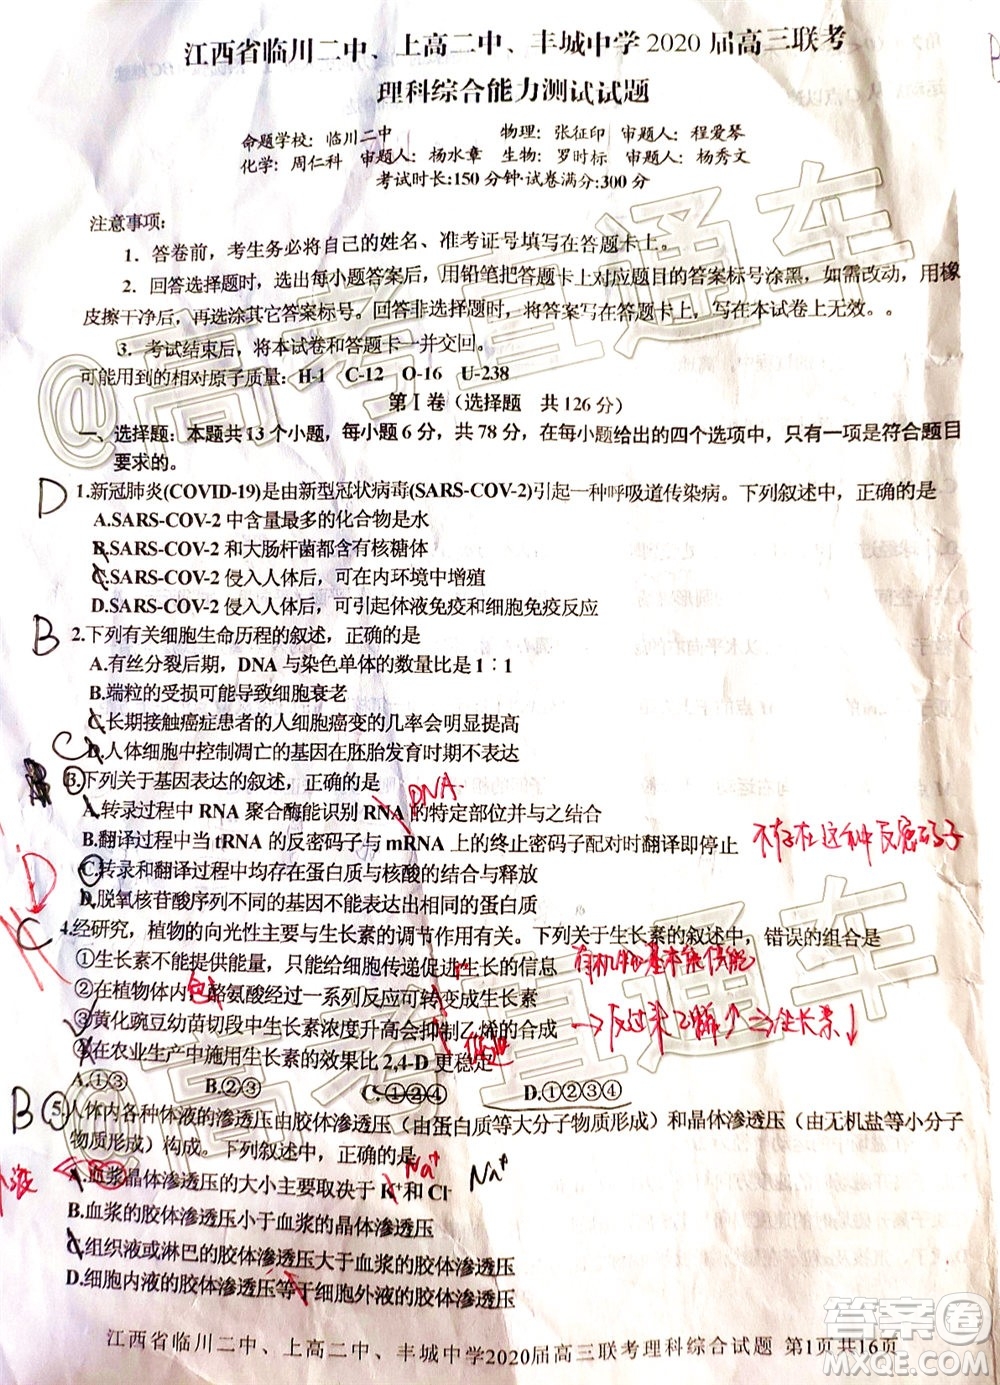 江西省临川二中、上高二中、丰城中学2020届高三联考
理科综合能力测试试题
命题学校：临川二中 物理：张征印 审题人：程爱琴
化学：周仁科 审题人：杨水章 生物：罗时标 审题人：杨秀文
考试时长:150分钟·试卷满分:300分
注意事项:
1．答卷前，考生务必将自己的姓名、准考证号填写在答题卡上。
2．回答选择题时，选出每小题答案后，用铅笔把答题卡上对应题目的答案标号涂黑，如需改动，用橡
皮擦干净后，再选涂其它答案标号。回答非选择题时，将答案写在答题卡上，写在本试卷上无效。。
3．考试结束后，将本试卷和答题卡一并交回。
可能用到的相对原子质量：H-1 C-12 O-16 U-238
第 I 卷（选择题 共 126 分）
一、选择题：本题共 13 个小题，每小题 6 分，共 78 分，在每小题给出的四个选项中，只有一项是符合题目
要求的。
D 1.新冠肺炎(COVID-19)是由新型冠状病毒(SARS-COV-2)引起一种呼吸道传染病。下列叙述中，正确的是
A.SARS-COV-2 中含量最多的化合物是水
B.SARS-COV-2 和大肠杆菌都含有核糖体
C.SARS-COV-2 侵入人体后，可在内环境中增殖
D.SARS-COV-2 侵入人体后，可引起体液免疫和细胞免疫反应
B 2.下列有关细胞生命历程的叙述，正确的是
A.有丝分裂后期，DNA 与染色单体的数量比是 1：1
B.端粒的受损可能导致细胞衰老
C.长期接触癌症患者的人细胞癌变的几率会明显提高
D.人体细胞中控制凋亡的基因在胚胎发育时期不表达
C 3.下列关于基因表达的叙述，正确的是
DNA
A.转录过程中 RNA 聚合酶能识别 RNA 的特定部位并与之结合
B.翻译过程中当 tRNA 的反密码子与 mRNA 上的终止密码子配对时翻译即停止 不存在这种反密码子
C.转录和翻译过程中均存在蛋白质与核酸的结合与释放
D.脱氧核苷酸序列不同的基因不能表达出相同的蛋白质
D
C 4.经研究，植物的向光性主要与生长素的调节作用有关。下列关于生长素的叙述中，错误的组合是
①生长素不能提供能量，只能给细胞传递促进生长的信息 有机物基本能供能
②在植物体内，色氨酸经过一系列反应可转变成生长素
③黄化豌豆幼苗切段中生长素浓度升高会抑制乙烯的合成 →反过来乙烯↑→生长素↓
④在农业生产中施用生长素的效果比 2,4-D 更稳定 促进
A.①③ B.②③ C.①②④ D.①②③④
B 5.人体内各种体液的渗透压由胶体渗透压（由蛋白质等大分子物质形成）和晶体渗透压（由无机盐等小分子
物质形成）构成。下列叙述中，正确的是
Na⁺
A.血浆晶体渗透压的大小主要取决于 K⁺和 Cl⁻ Na⁺
B.血浆的胶体渗透压小于血浆的晶体渗透压
C.组织液或淋巴的胶体渗透压大于血浆的胶体渗透压
D.细胞内液的胶体渗透压等于细胞外液的胶体渗透压
江西省临川二中、上高二中、丰城中学2020届高三联考理科综合试题 第1页共16页
@高考直通车
@高考直通车
答案卷